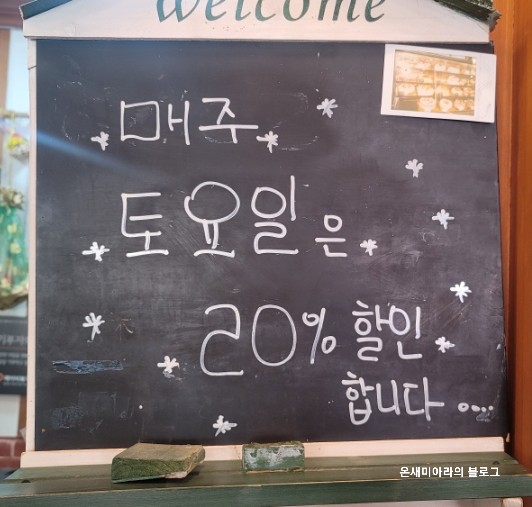 welcome
매주
토요일은
20% 할인
합니다...
온새미아라의 블로그